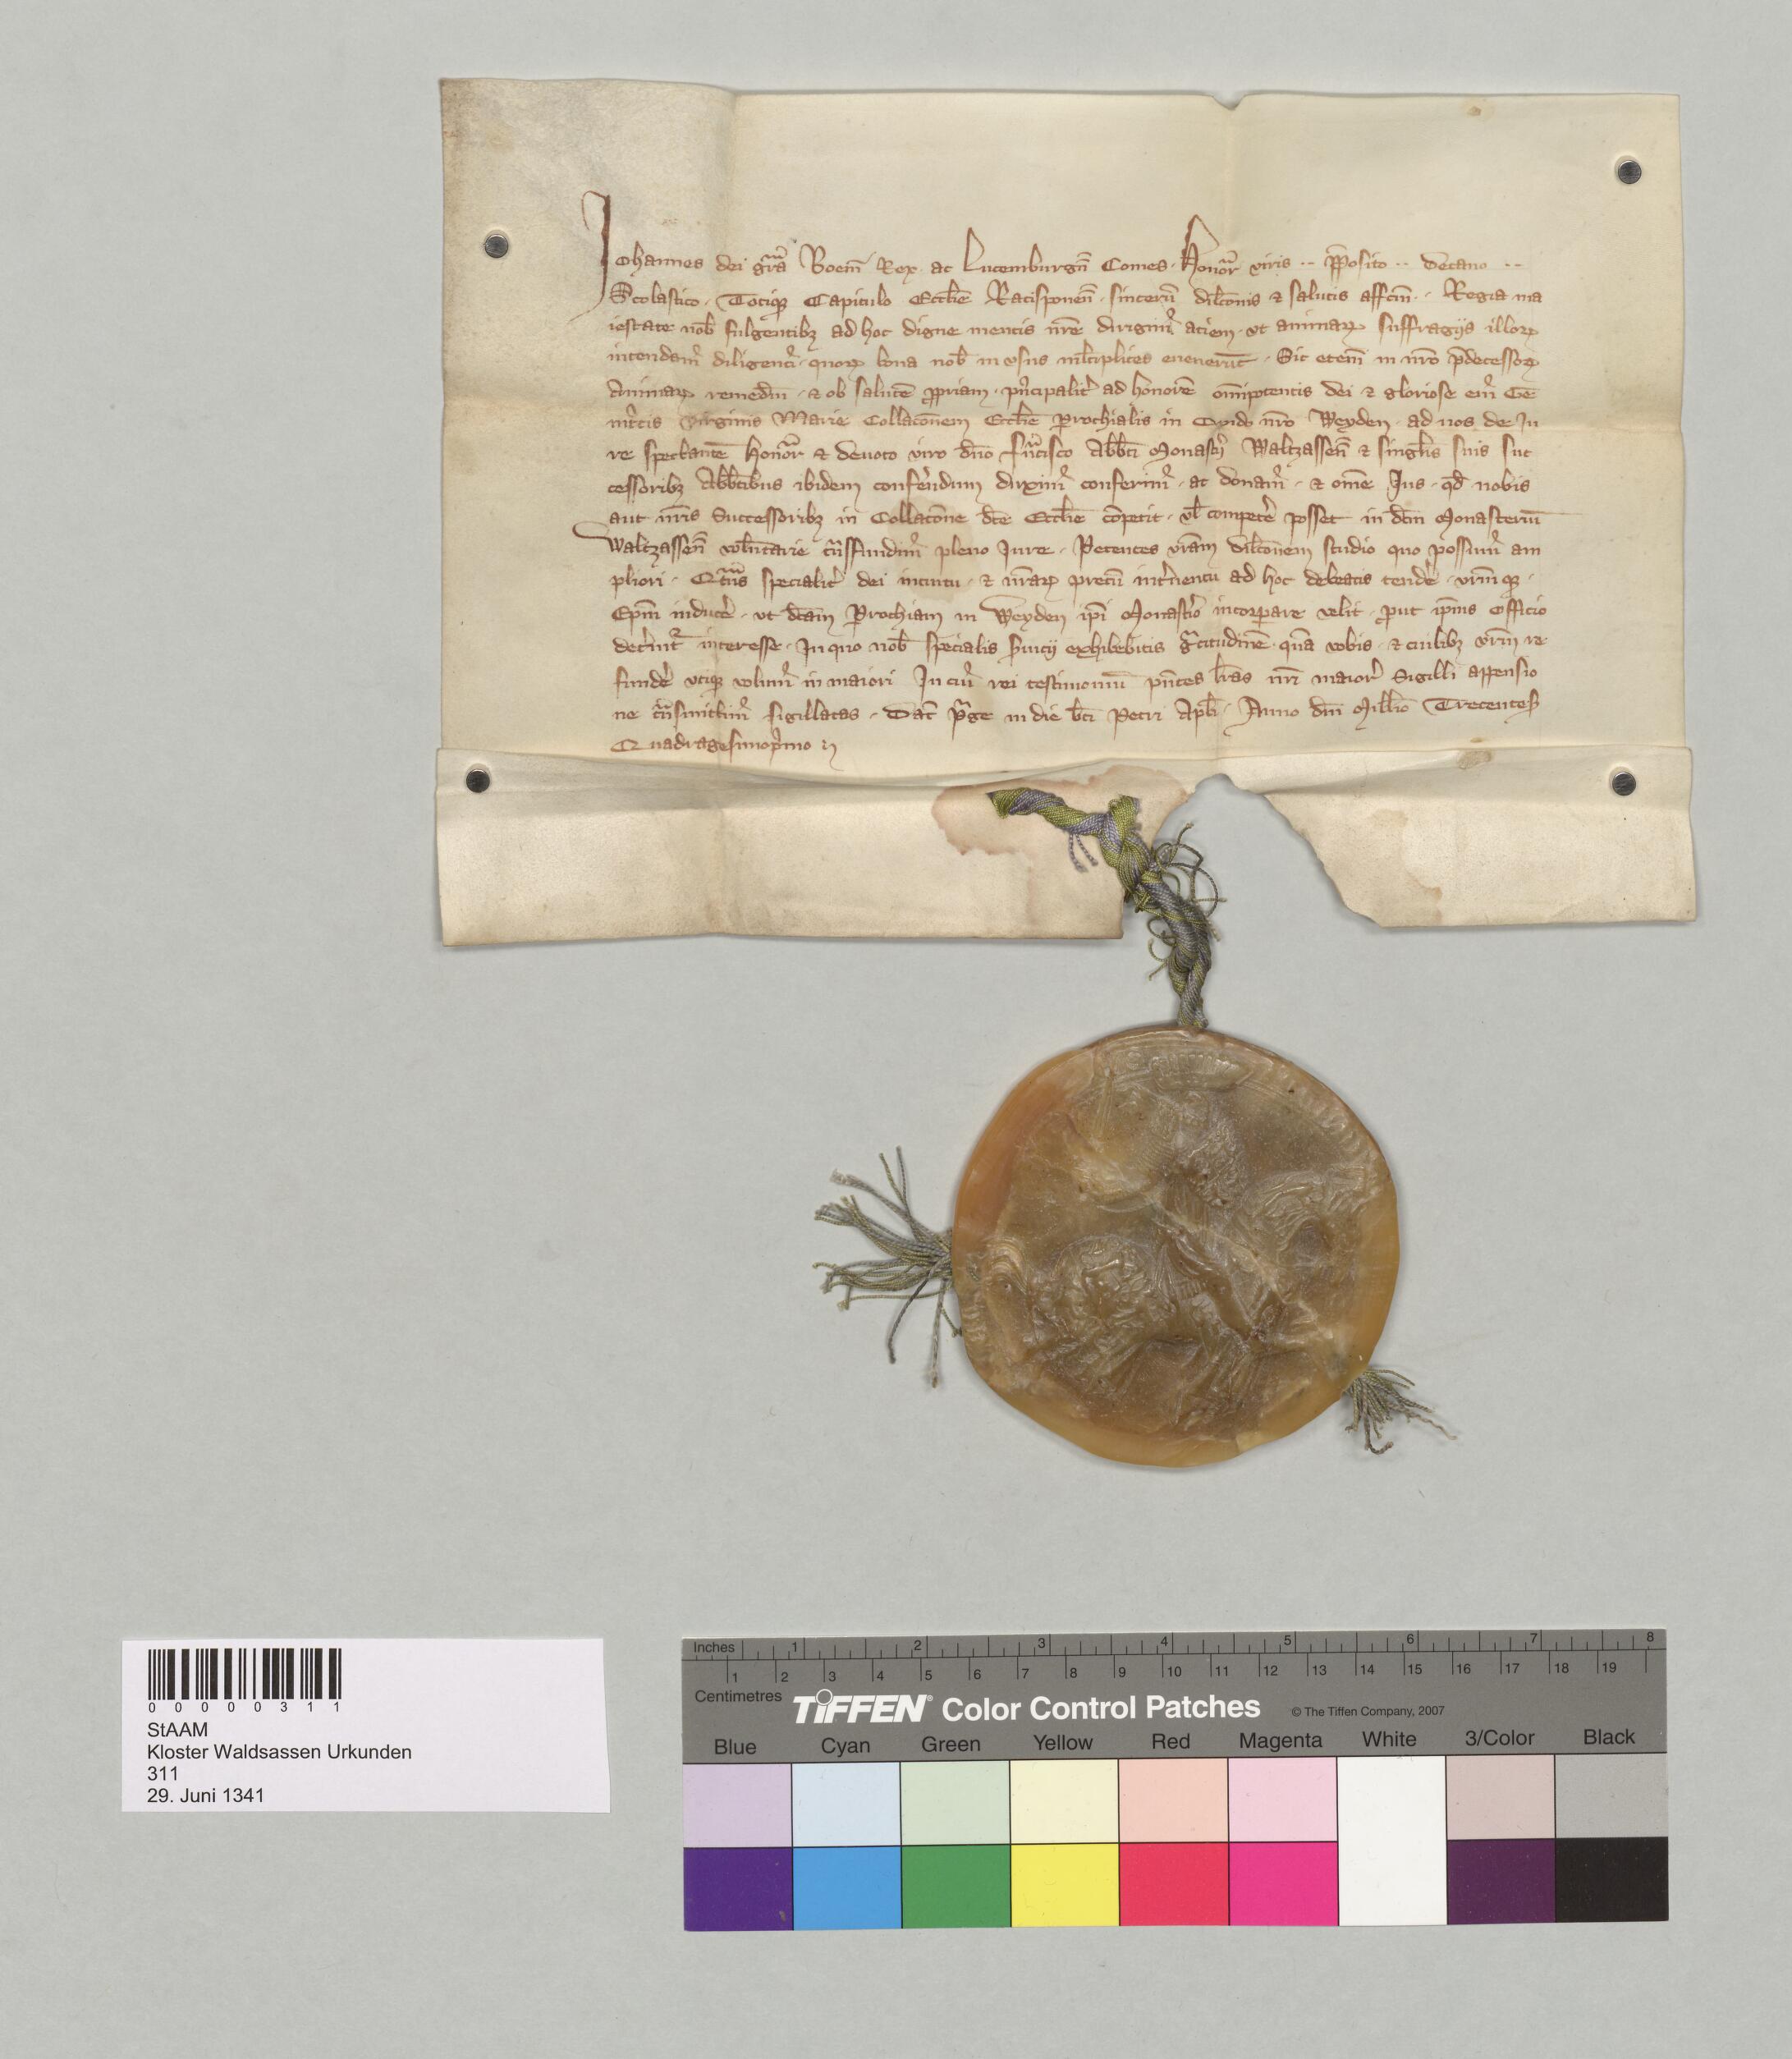 Johannes dei gr̄a Boem̄ Rex ac Lucemburgn̄ Comes. Honor̄ viris ·· p̄posito ·· decano ··
Scolastico. Totiqȝ Capitulo Eccl̄ie Ratisponen̄. sincerū dil̄cōnis ⁊ salutis affc̄m. Regia ma
iestate nob̄ fulgentibȝ ad hoc digne mentis nr̄e dirigim᷒ aciem. vt animaꝝ suffragijs illoꝝ
intendam᷒ diligenci᷒. quoꝝ bona nob̄ in vsus ml̄tiplices euenerūt. Sic eten̄ in nr̄oꝝ p̄decessoꝝ
Animaꝝ remediū. ⁊ ob salutē ꝓpriam. pͥncipalit᷒ ad honorē om̄ipotentis dei ⁊ gloriose ei᷒ Ge
nit̄cis virginis Marie Collac̄onem Eccl̄ie ꝑrochialis in Opido nr̄o Weyden. ad nos de Ju
re spectantē Honor̄ ⁊ deuoto viro dn̄o Fr̄ncisco Abb̄ti Monast᷒ij Waltzassen̄ ⁊ singl̄is suis suc
cessoribȝ Abb̄tibus ibidem conferendum duxim᷒ conferim᷒. ac donam᷒. ⁊ om̄e Jus. qd̄ nobis
aut nr̄is Successoribȝ in Collacōne dc̄e Eccl̄ie cōpetit. vl̄ compet᷒e posset in dc̄m Monasteriū
Waltzassen̄ volūtarie tr̄nsfundim᷒ pleno Jure. Petentes vr̄am dil̄cōnem studio quo possum᷒ am
pliori. Qt̄n᷒s specialit᷒ dei intuitu. ⁊ nr̄aꝝ precū int᷒uentu ad hoc debeatis tend᷒e. vr̄mqȝ.
Ep̄m induc᷒e. vt dc̄am ꝑrochiam in Weyden ip̄i Monast᷒io incorꝑare velit. ꝓut ip̄ius officio
dec᷒nit᷒ interesse. In quo nob̄ sp̄ecialis s᷒uicij exhibeb̄itis gͣtitudinē. quā vobis. ⁊ cuilibȝ vr̄m re
fund᷒e vtiqȝ volum᷒ in maiori In cui᷒ rei testimoniū pn̄tes lr̄as nr̄i maior᷒ Sigilli appensio
ne tr̄nsmittim᷒ sigillatas. Dat̄ pͣge in die bt̄i Petri Apl̄i. Anno dn̄i Mill̄io Trecentes̄
Quadragesimopͥmo
0 0 0 0 0 3 1 1
StAAM
Kloster Waldsassen Urkunden
311
29. Juni 1341
Inches 1 2 3 4 5 6 7 8
1 2 3 4 5 6 7 8 9 10 11 12 13 14 15 16 17 18 19
Centimetres
TIFFEN® Color Control Patches © The Tiffen Company, 2007
Blue Cyan Green Yellow Red Magenta White 3/Color Black